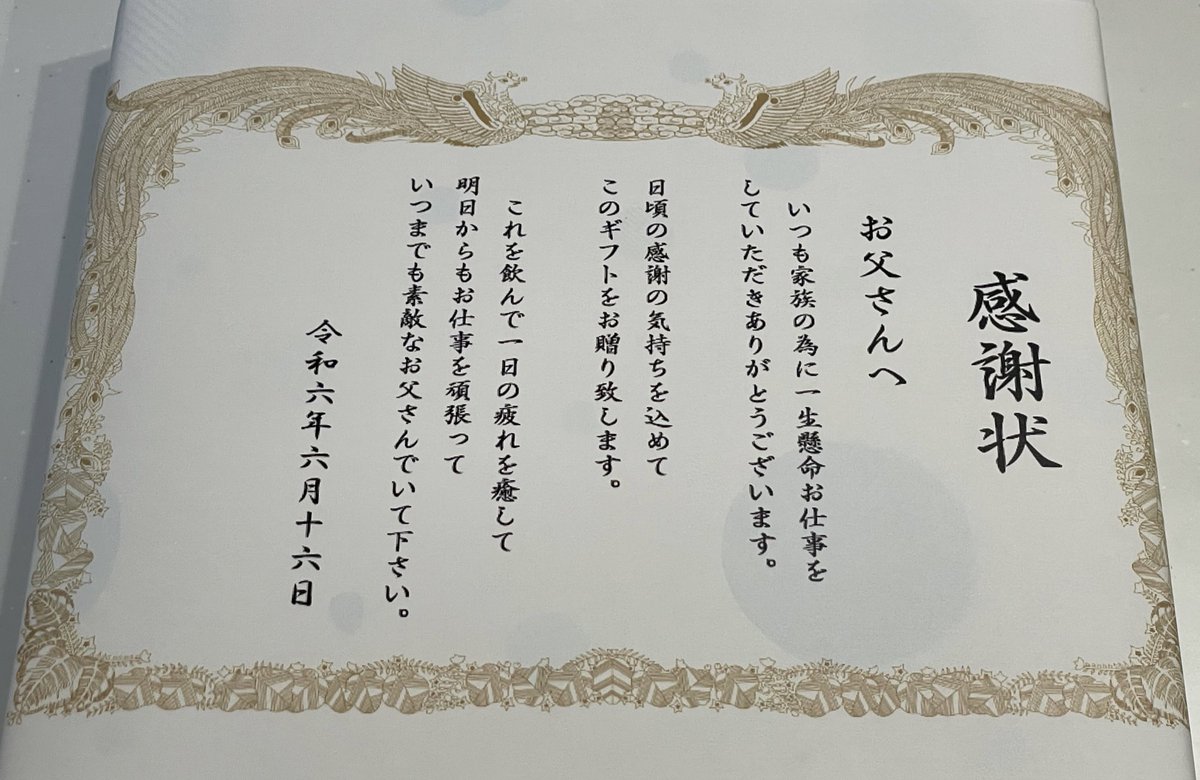 感謝状
お父さんへ
いつも家族の為に一生懸命お仕事を
していただきありがとうございます。
日頃の感謝の気持ちを込めて
このギフトをお贈り致します。
これを飲んで一日の疲れを癒して
明日からもお仕事を頑張って
いつまでも素敵なお父さんでいて下さい。
令和六年六月十六日